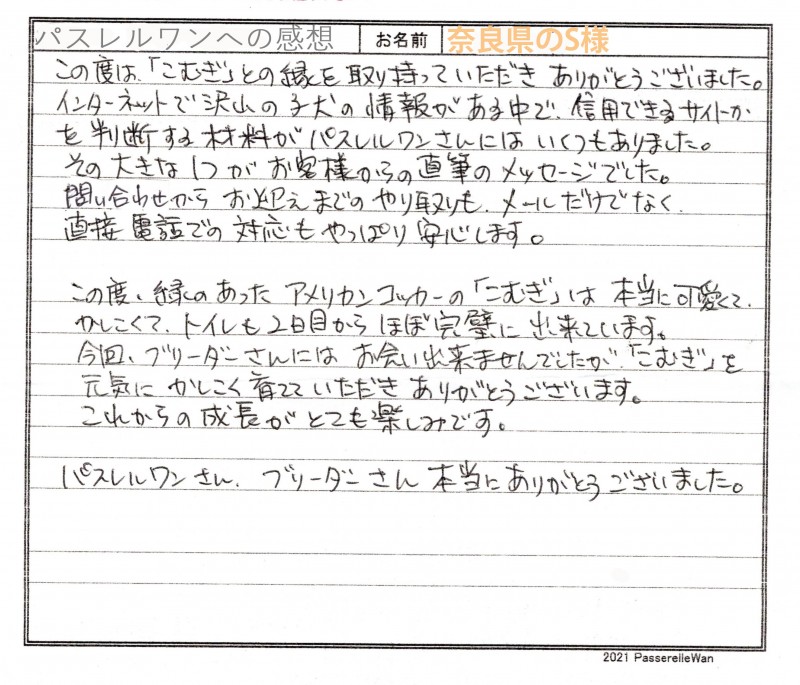 パスレルワンへの感想 お名前 奈良県のS様
この度は、「こむぎ」との縁を取り持っていただき ありがとうございました。
インターネットで沢山の子犬の情報がある中で、信用できるサイトか
を判断する材料がパスレルワンさんにはいくつもありました。
その大きな1つがお客様からの直筆のメッセージでした。
問い合わせから お迎えまでのやり取りも、メールだけでなく、
直接電話での対応もやっぱり安心します。
この度、縁のあった アメリカンコッカーの「こむぎ」は 本当に可愛くて、
かしこくて、トイレも2日目からほぼ完璧に 出来ています。
今回、ブリーダーさんには お会い出来ませんでしたが、「こむぎ」を
元気に かしこく育てて いただき ありがとうございます。
これからの成長が とても楽しみです。
パスレルワンさん、ブリーダーさん 本当にありがとうございました。
2021 PasserelleWan